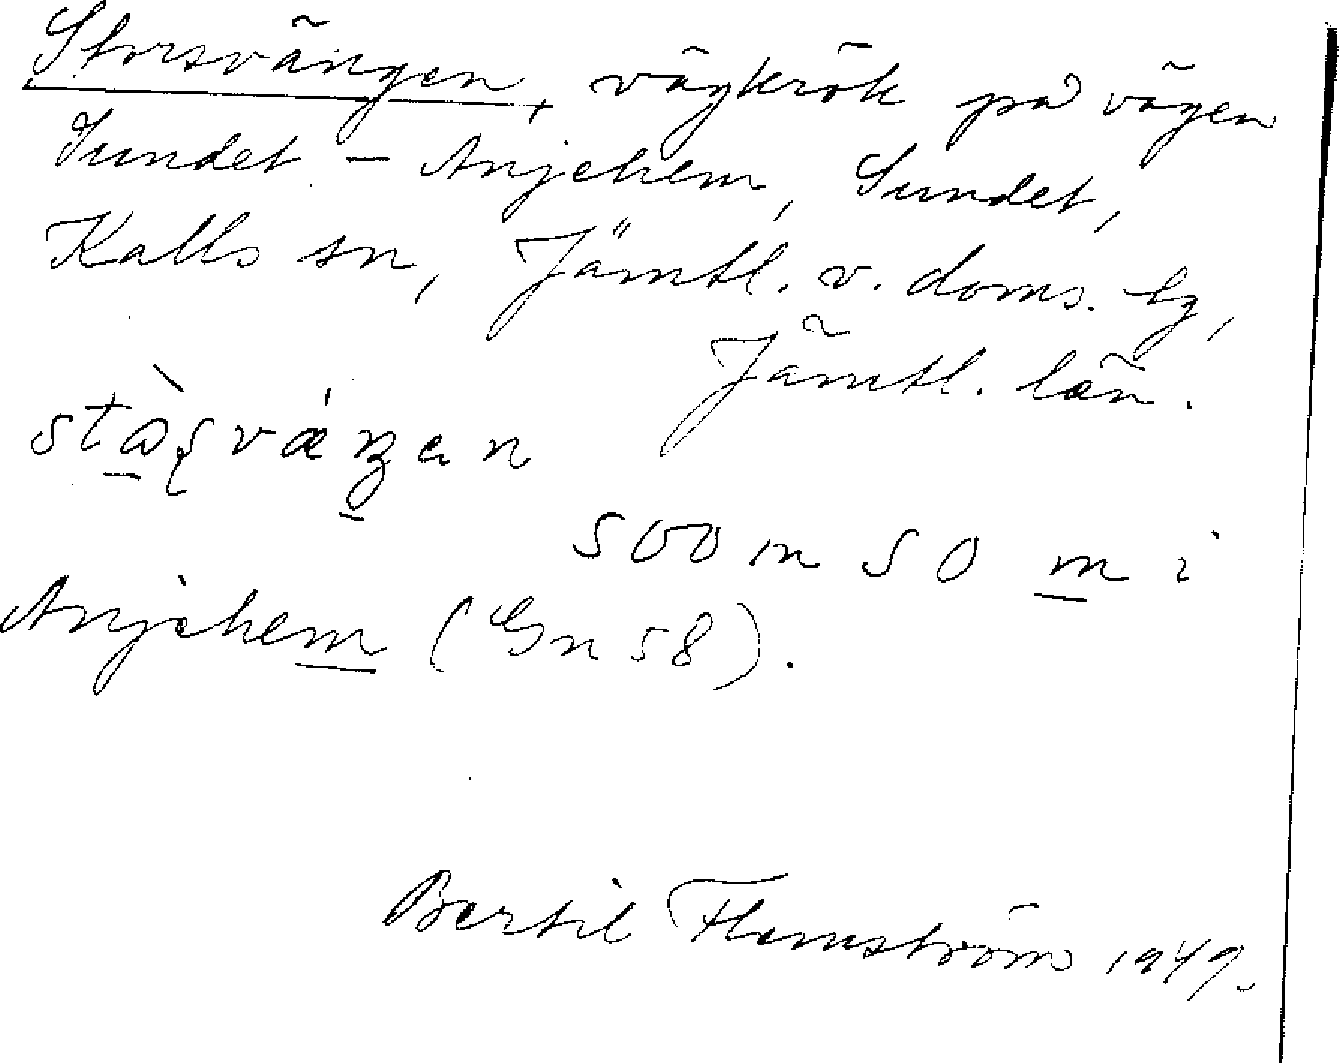 Storsvängen, vägkrök på vägen
Sundet - Anjehem, Sundet,
Kalls sn, Jämtl. v. doms. lg,
Jämtl. län.
500 m SO m i
Anjehem (Gn 58).
Bertil Flemström 1949.